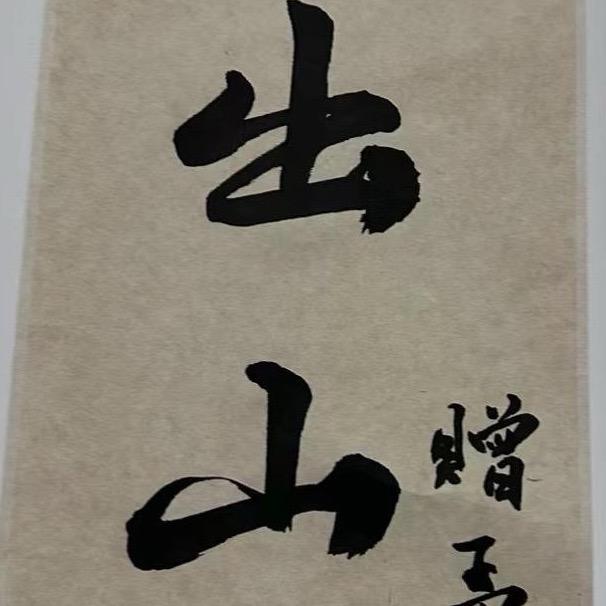 出山
赠